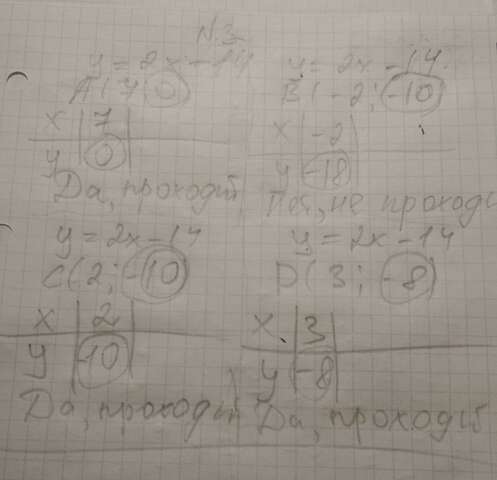 N.3
y = 2x - 14
A(7; 0)
x | 7
y | 0
Да, проходит
y = 2x - 14
B(-2; -10)
x | -2
y | -18
Нет, не проходи
y = 2x - 14
C(2; -10)
x | 2
y | -10
Да, проходит
y = 2x - 14
D(3; -8)
x | 3
y | -8
Да, проходит